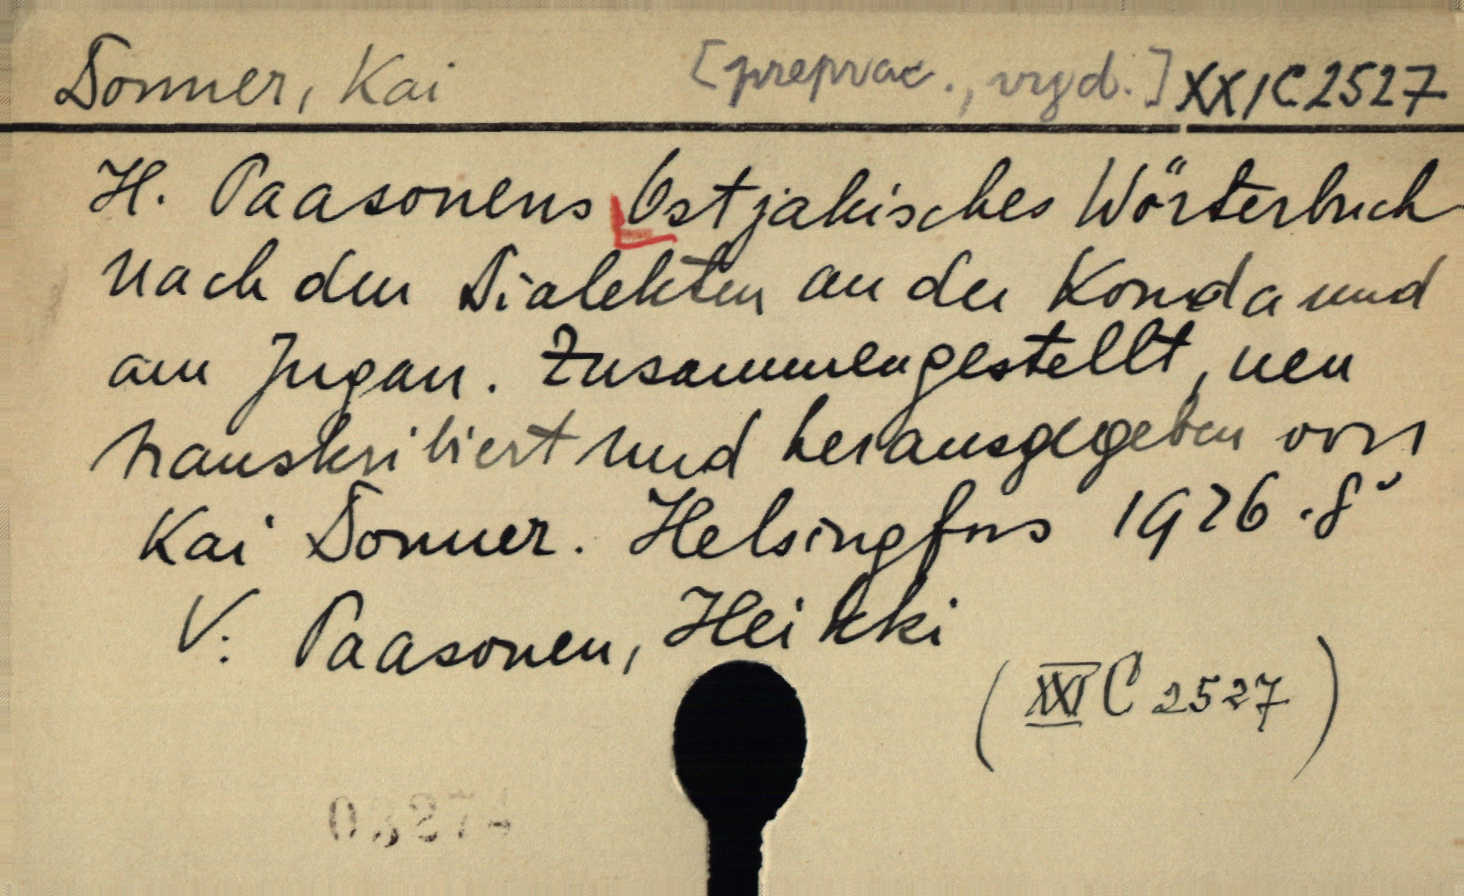 Donner, Kai [preprac., vyd.] XXI C 2527
H. Paasonens Ostjakisches Wörterbuch
nach den Dialekten an der Konda und
am Jugan. Zusammengestellt, neu
transkribiert und herausgegeben von
Kai Donner. Helsingfors 1926. 8°
V: Paasonen, Heikki
(XXI C 2527)